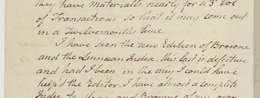 they have Materials nearly for a 3d Vol
of Transactions so that it may come out
in a Twelvemonths time.
I have seen the new Edition of Browne
and the Linnean Index, this last is defective
and had I been in the way I could have
help'd the Editor, I have almost a complete
Index to and Browne of my own